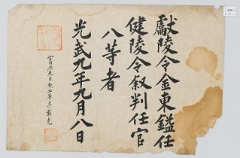 獻陵令金東鑑任
健陵令敘判任官
八等者
光武九年九月八日
宮內府大臣 李載克